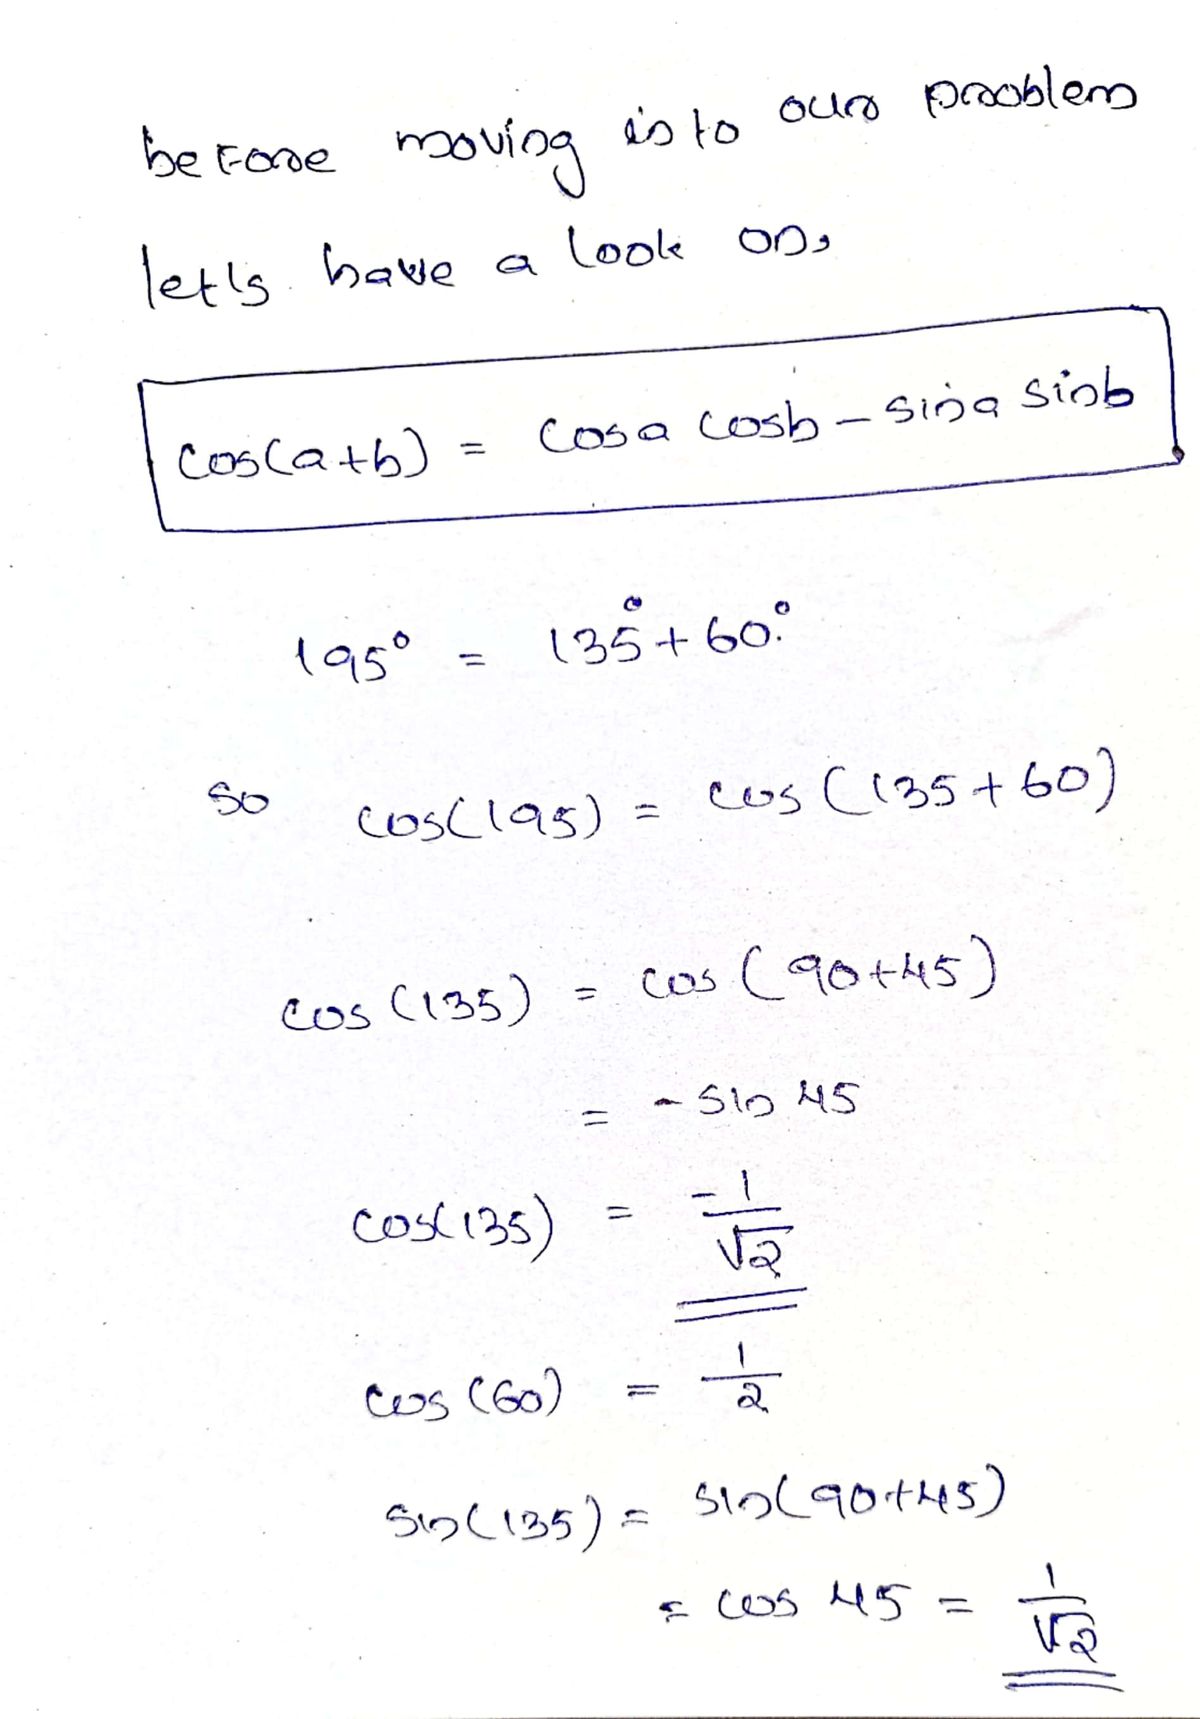 before moving into our problem
let's have a look on,
cos(a+b) = cosa cosb - sina sinb
195° = 135° + 60°
so cos(195) = cos(135+60)
cos(135) = cos(90+45)
= -sin 45
cos(135) = -1/√2
cos(60) = 1/2
sin(135) = sin(90+45)
= cos 45 = 1/√2